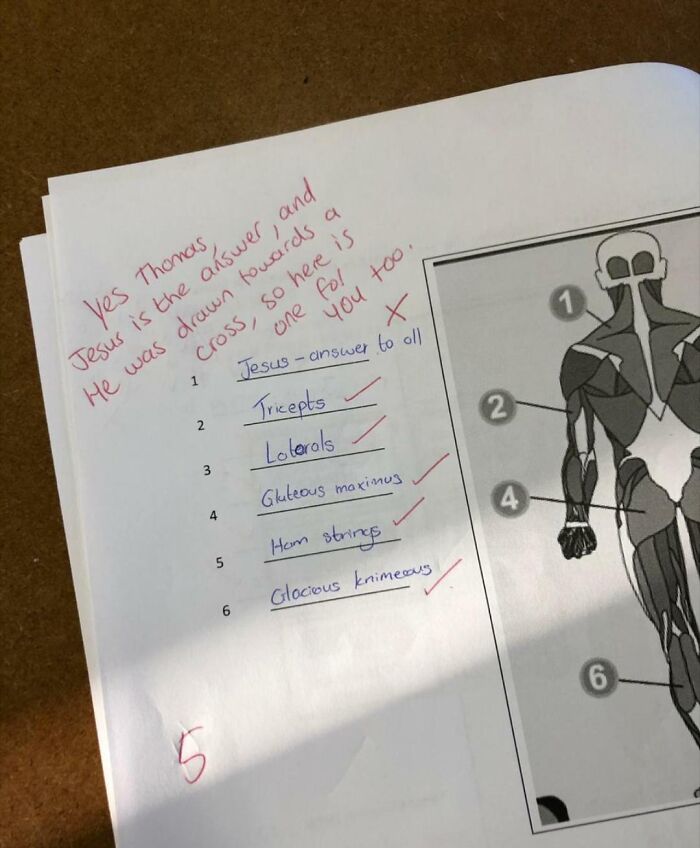 Yes Thomas,
Jesus is the answer, and
He was drawn towards a
cross, so here is
one for
you too.
1 Jesus - answer to all
2 Tricepts
3 Laterals
4 Gluteous maximus
5 Ham strings
6 Glacious knimeous
5
1
2
4
6